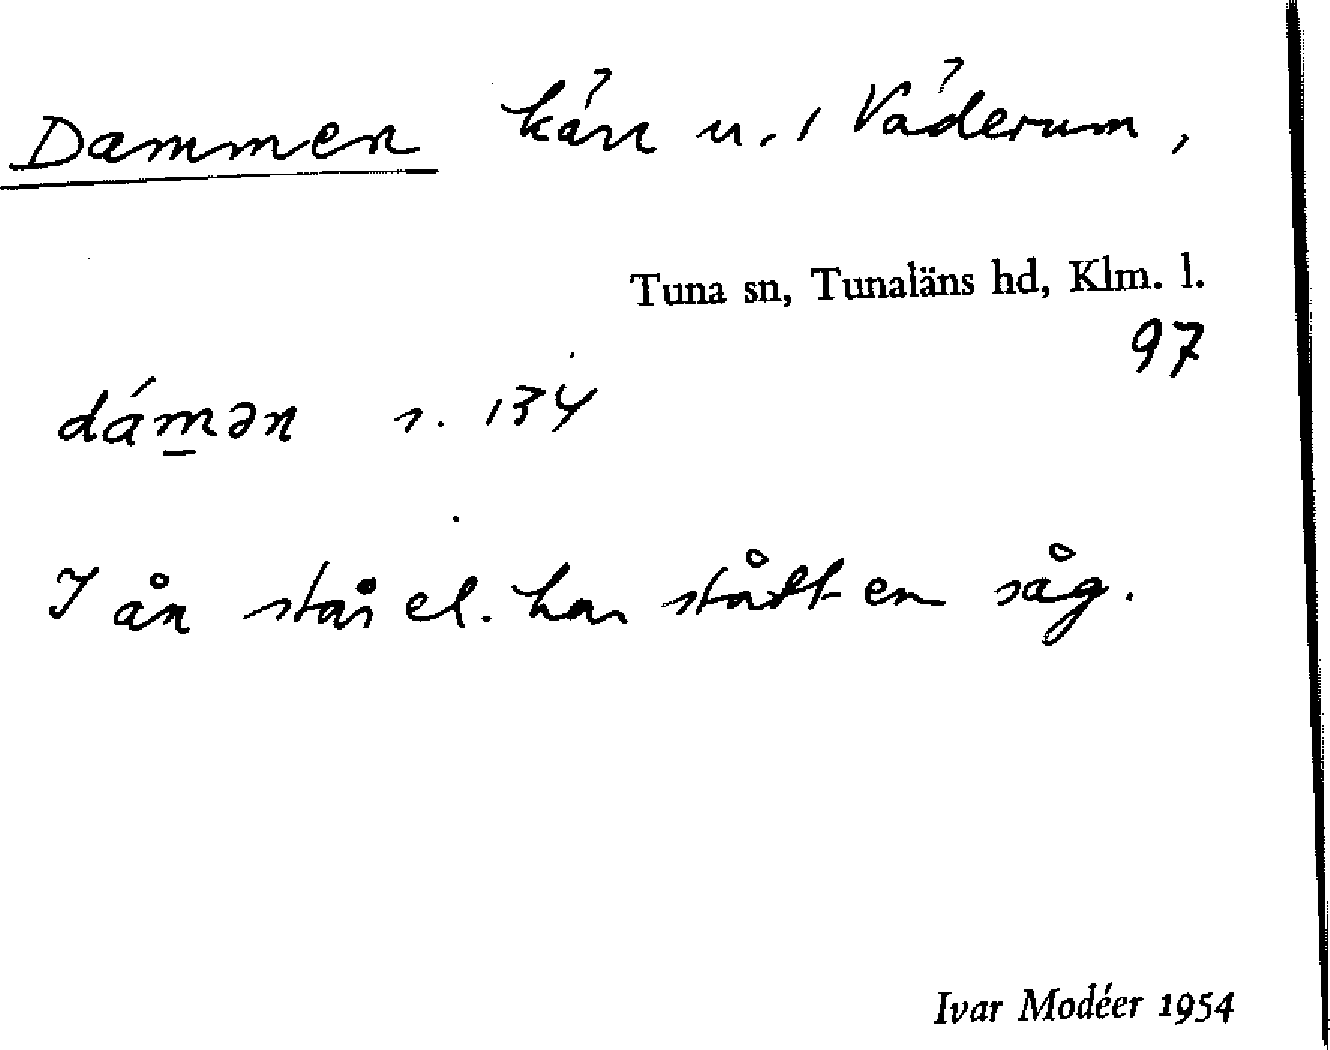 Dammen kärr u. 1 Väderum,
Tuna sn, Tunaläns hd, Klm. l.
97
dám̲ən s. 134
I ån står el. har stått en såg.
Ivar Modéer 1954